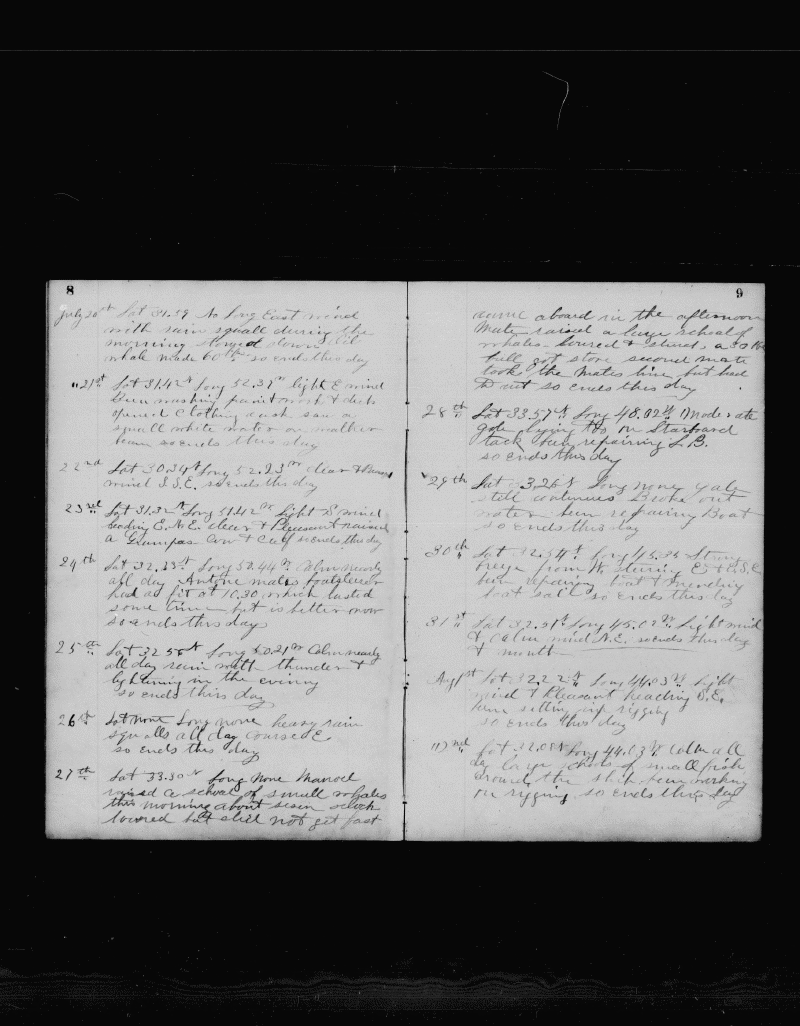 8
July 20th Lat 31.59 No Long East wind
with rain squall during the
morning storyed down oil
whale made 60 so ends this day
"21st Lat 31.42 N Long 52.39 W light E wind
been washing paint work & decks
opened clothing cask saw a
small white water on weather
beam so ends this day
22nd Lat 30.34 N Long 52.23 W clear &
wind S.S.E. so ends this day
23rd Lat 31.32 N Long 51.42 W Light S wind
heading E.N.E. clear & Pleasant raised
a Grampas Cow & Calf so ends this day
24th Lat 32.33 N Long 50.44 W Calm nearly
all day Antone mates boatsteerer
had a fit at 10.30 which lasted
some time but is better now
so ends this day
25th Lat 32 56 N Long 50.21 W Calm nearly
all day rain with thunder &
lightning in the evining
so ends this day
26th Lat none Long none heavy rain
squalls all day course E
so ends this day
27th Lat 33.30 N Long None Manoel
raised a school of small whales
this morning about seven oclock
lowered but did not get fast
9
came aboard in the afternoon
Mate raised a large school of
whales. lowred & struck a 30 bbl
bull got stove second mate
took the mates line but had
to cut so ends this day
28th Lat 33.57 N Long 48.02 W Moderate
gale lying too on Starboard
tack been repairing L.B.
so ends this day
29th Lat 33.26 N Long none gale
still continues Broke out
water been repairing Boat
so ends this day
30th Lat 32.54 N Long 45.35 Strong
breeze from W stering E & E.S.E
been repairing boat & mending
boat sail so ends this day
31st Lat 32.31 N Long 45.02 W Light wind
& Calm wind N.E. so ends this day
& month
Aug 1st Lat 32.22 N Long 44.03 W Light
wind & Pleasant heading S.E.
been setting up rigging
so ends this day
"2nd Lat 32.08 N Long 44.03 W Calm all
day large schools of small fish
around the ship been working
on rigging so ends this day